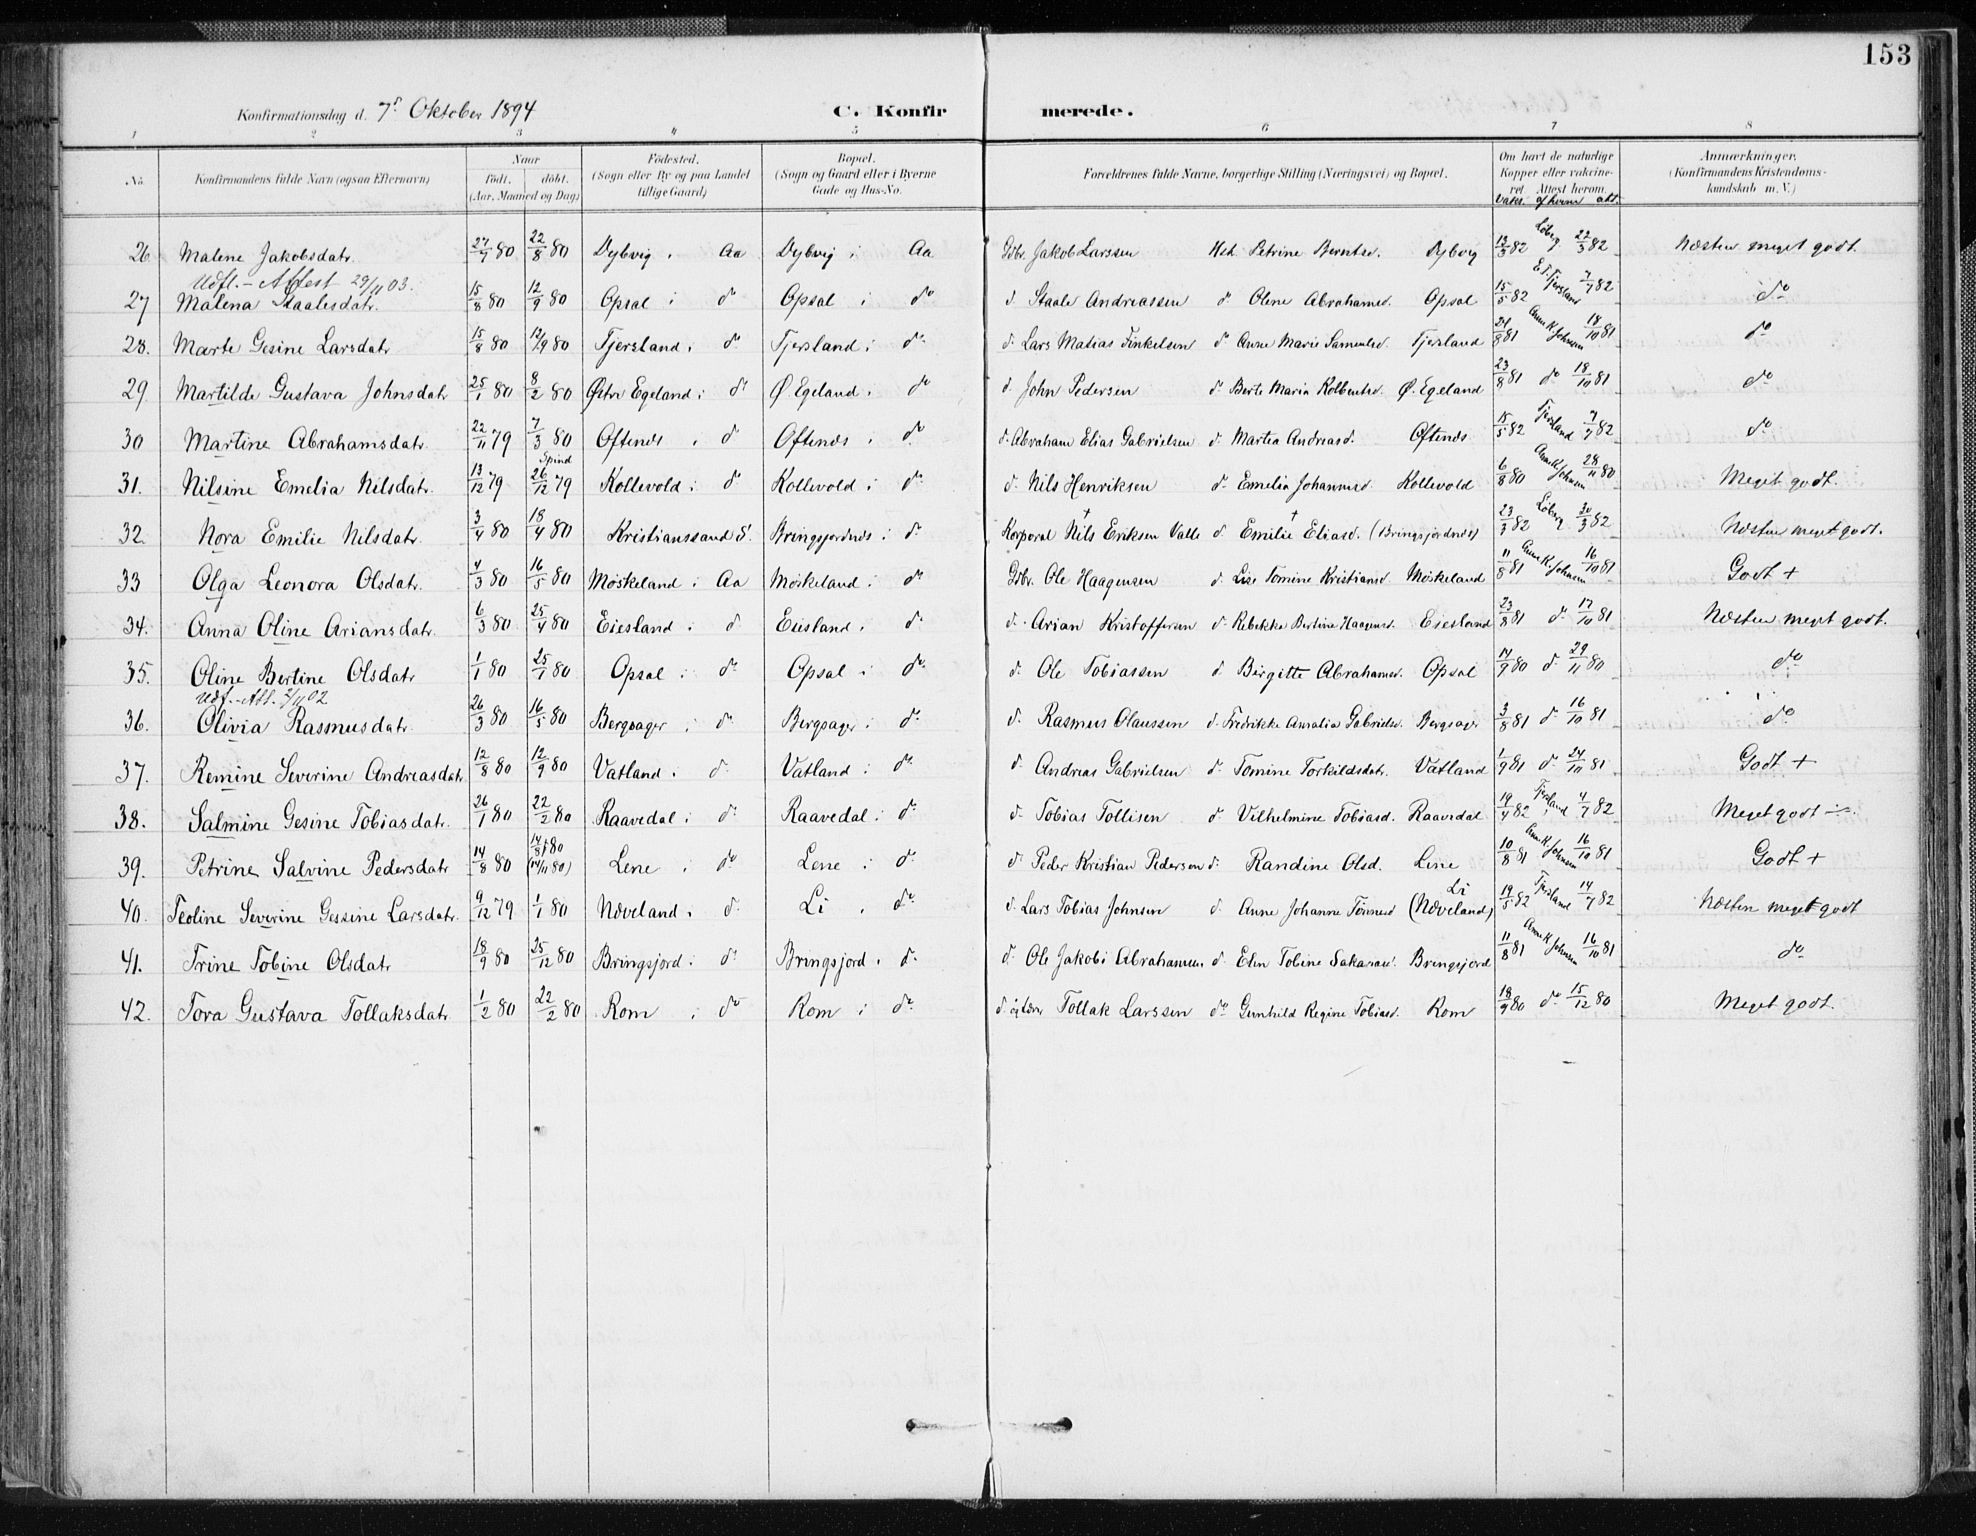 153
Konfirmationsdag d. 7de Oktober 1894 C. Konfirmerede.
1 2 3 4 5 6 7 8
No. Konfirmandens fulde Navn (ogsaa Efternavn) Naar født. døbt. (Aar, Maaned og Dag) Fødested. (Sogn eller By og paa Landet tillige Gaard) Bopæl. (Sogn og Gaard eller i Byerne Gade og Hus-No. Forældrenes fulde Navne, borgerlige Stilling (Næringsvei) og Bopæl. Om havt de naturlige Kopper eller vaccineret. Attest herom. Vaks. af hvem att. Anmærkninger. (Konfirmandens Kristendomskundskab m. V.)
26 Malene Jakobsdatr. 27/7 80 22/8 80 Dybvig i Aa Dybvig i Aa Gdbr. Jakob Larssen Hst. Petrine Berntsd. Dybvig 12/3 82 Löberg 22/3 82 Næsten meget godt.
Udfl.-Attest 29/11 03.
27 Malena Staalesdatr. 15/8 80 12/9 80 Opsal i do Opsal i do d. Staale Andreassen do Olene Abrahamsd. Opsal 15/5 82 E.T. Tjersland 7/7 82 do
28. Marte Gesine Larsdatr 15/8 80 12/9 80 Tjersland i do Tjersland i do d. Lars Matias Finkelsen do Anne Marie Samuelsd. Tjersland 24/8 81 Anne K. Johnsen 18/10 81 do
29 Martilde Gustava Johnsdatr 25/1 80 8/2 80 Østre Egeland i do Ø. Egeland i do d. John Pedersen do Berte Maria Kolbentsd. Ø. Egeland 23/8 81 do 18/10 81 do
30 Martine Abrahamsdatr. 22/11 79 7/3 80 Oftenes i do Oftenes i do d. Abraham Elias Gabrielsen d. Martea Andreasd. Oftenes 15/5 82 Tjersland 7/7 82 do
31. Nilsine Emelia Nilsdatr. 13/12 79 Spind 26/12 79 Kollevold i do Kollevold i do d. Nils Henriksen d. Emelia Johannesd. Kollevold 6/8 80 Anne K. Johnsen 28/11 80 Meget godt.
32. Nora Emilie Nilsdatr. 3/4 80 18/4 80 Kristianssand S. Bringsjordnes i do Korporal Nils † Eriksen Valle d. Emilie † Eliasd. (Bringsjordnes) 23/3 82 Löberg 30/3 82 Næsten meget godt.
33 Olga Leonora Olsdatr. 4/3 80 16/5 80 Møskeland i Aa Møskeland i do Gdbr. Ole Haagensen d. Lise Tomine Kristiansd. Møskeland 11/8 81 Anne K. Johnsen 16/10 81 Godt +
34. Anna Oline Ariansdatr. 6/3 80 25/4 80 Eiesland i do Eiesland i do d. Arian Kristoffersen d. Rebekke Bertine Haagensd. Eiesland 23/8 81 do 17/10 81 Næsten meget godt.
35. Oline Bertine Olsdatr 1/1 80 25/1 80 Opsal i do Opsal i do d. Ole Tobiassen d. Birgitte Abrahamsd. Opsal 14/9 80 d. 29/11 80 do
Udf.-Att. 2/11 02
36. Olivia Rasmusdatr. 26/3 80 16/5 80 Bergsager i do Bergsager i do d. Rasmus Olaussen d. Fredrikke Amalia Gabrielsd. Bergsager 3/8 81 d. 16/10 81 do
37. Remine Severine Andreasdatr 12/8 80 12/9 80 Vatland i do Vatland i do d. Andreas Gabrielsen d. Tomine Torkildsdatr. Vatland 1/9 81 d. 24/10 81 Godt +
38. Salmine Gesine Tobiasdatr. 26/1 80 22/2 80 Raavedal i do Raavedal i do d. Tobias Tollisen d. Vilhelmine Tobiasd. Raavedal 19/4 82 Tjersland 4/7 82 Meget godt ÷.
39. Petrine Salvine Pedersdatr 14/8 80 14/8 80 (14/11 80) Lene i do Lene i do d. Peder Kristian Pedersen d. Randine Olsd. Lene 10/8 81 Anne K. Johnsen 16/10 81 Godt +
40. Teoline Severine Gessine Larsdatr. 9/12 79 1/1 80 Næveland i do Li i do d. Lars Tobias Johnsen d. Anne Johanne Tönnesd Li (Næveland) 19/5 82 Tjersland 14/7 82 Næsten meget godt
41. Trine Tobine Olsdatr 18/9 80 25/12 80 Bringsjord i do Bringsjord i do d. Ole Jakobi Abrahamsen d. Elen Tobine Sakariasd. Bringsjord 11/8 81 Anne K. Johnsen 16/10 81 do
42. Tora Gustava Tollaksdatr. 1/2 80 22/2 80 Rom i do Rom i do d. Tollak Larssen do Gunhild Regine Tobiasd. Rom 18/9 80 do 15/12 80 Meget godt.